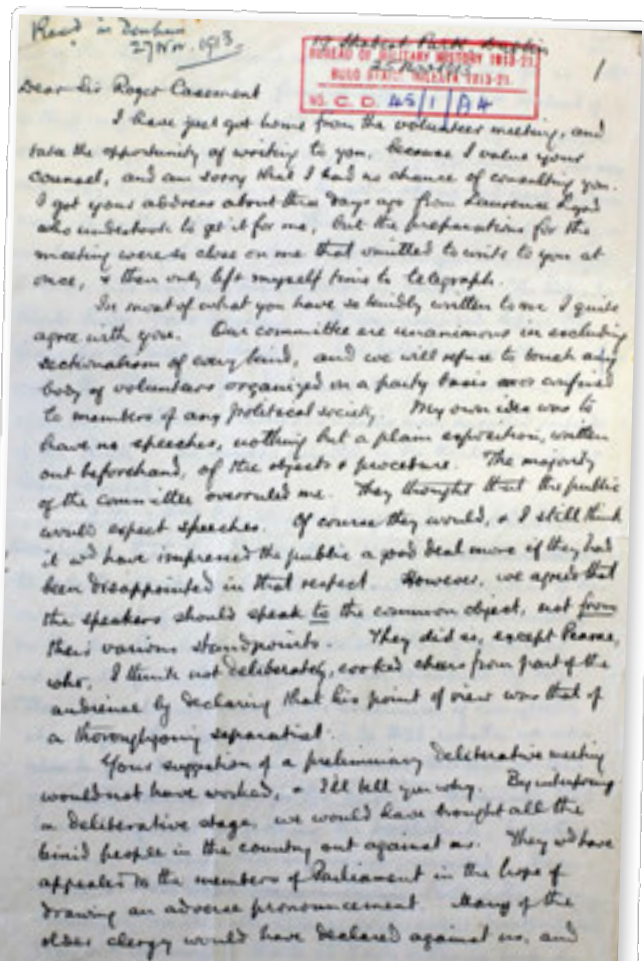 Recd in Denham
27 Nov. 1913.
19 Herbert Park Dublin
BUREAU OF MILITARY HISTORY 1913-21
BURO STAIRE MILEATA 1913-21
No. C.D. 45/1/A4
1
Dear Sir Roger Casement
I have just got home from the volunteer meeting, and
take the opportunity of writing to you, because I value your
counsel, and am sorry that I had no chance of consulting you.
I got your address about three days ago from Laurence
who undertook to get it for me, but the preparations for the
meeting were so close on me that I omitted to write to you at
once, & then only left myself time to telegraph.
In most of what you have so kindly written to me I quite
agree with you. Our committee are unanimous in excluding
sectionalism of every kind, and we will refuse to touch any
body of volunteers organized on a party basis or confined
to members of any political society. My own idea was to
have no speeches, nothing but a plain exposition, written
out beforehand, of the objects & procedure. The majority
of the committee overruled me. They thought that the public
would expect speeches. Of course they would, & I still think
it wd have impressed the public a good deal more if they had
been disappointed in that respect. However, we agreed that
the speakers should speak to the common object, not from
their various standpoints. They did so, except Pearse,
who, I think not deliberately, evoked cheers from part of the
audience by declaring that his point of view was that of
a thoroughgoing separatist.
Your suggestion of a preliminary deliberative meeting
would not have worked, & I'll tell you why. By interposing
a deliberative stage, we would have brought all the
timid people in the country out against us. They wd have
appealed to the members of Parliament in the hope of
drawing an adverse pronouncement. Many of the
older clergy would have declared against us, and